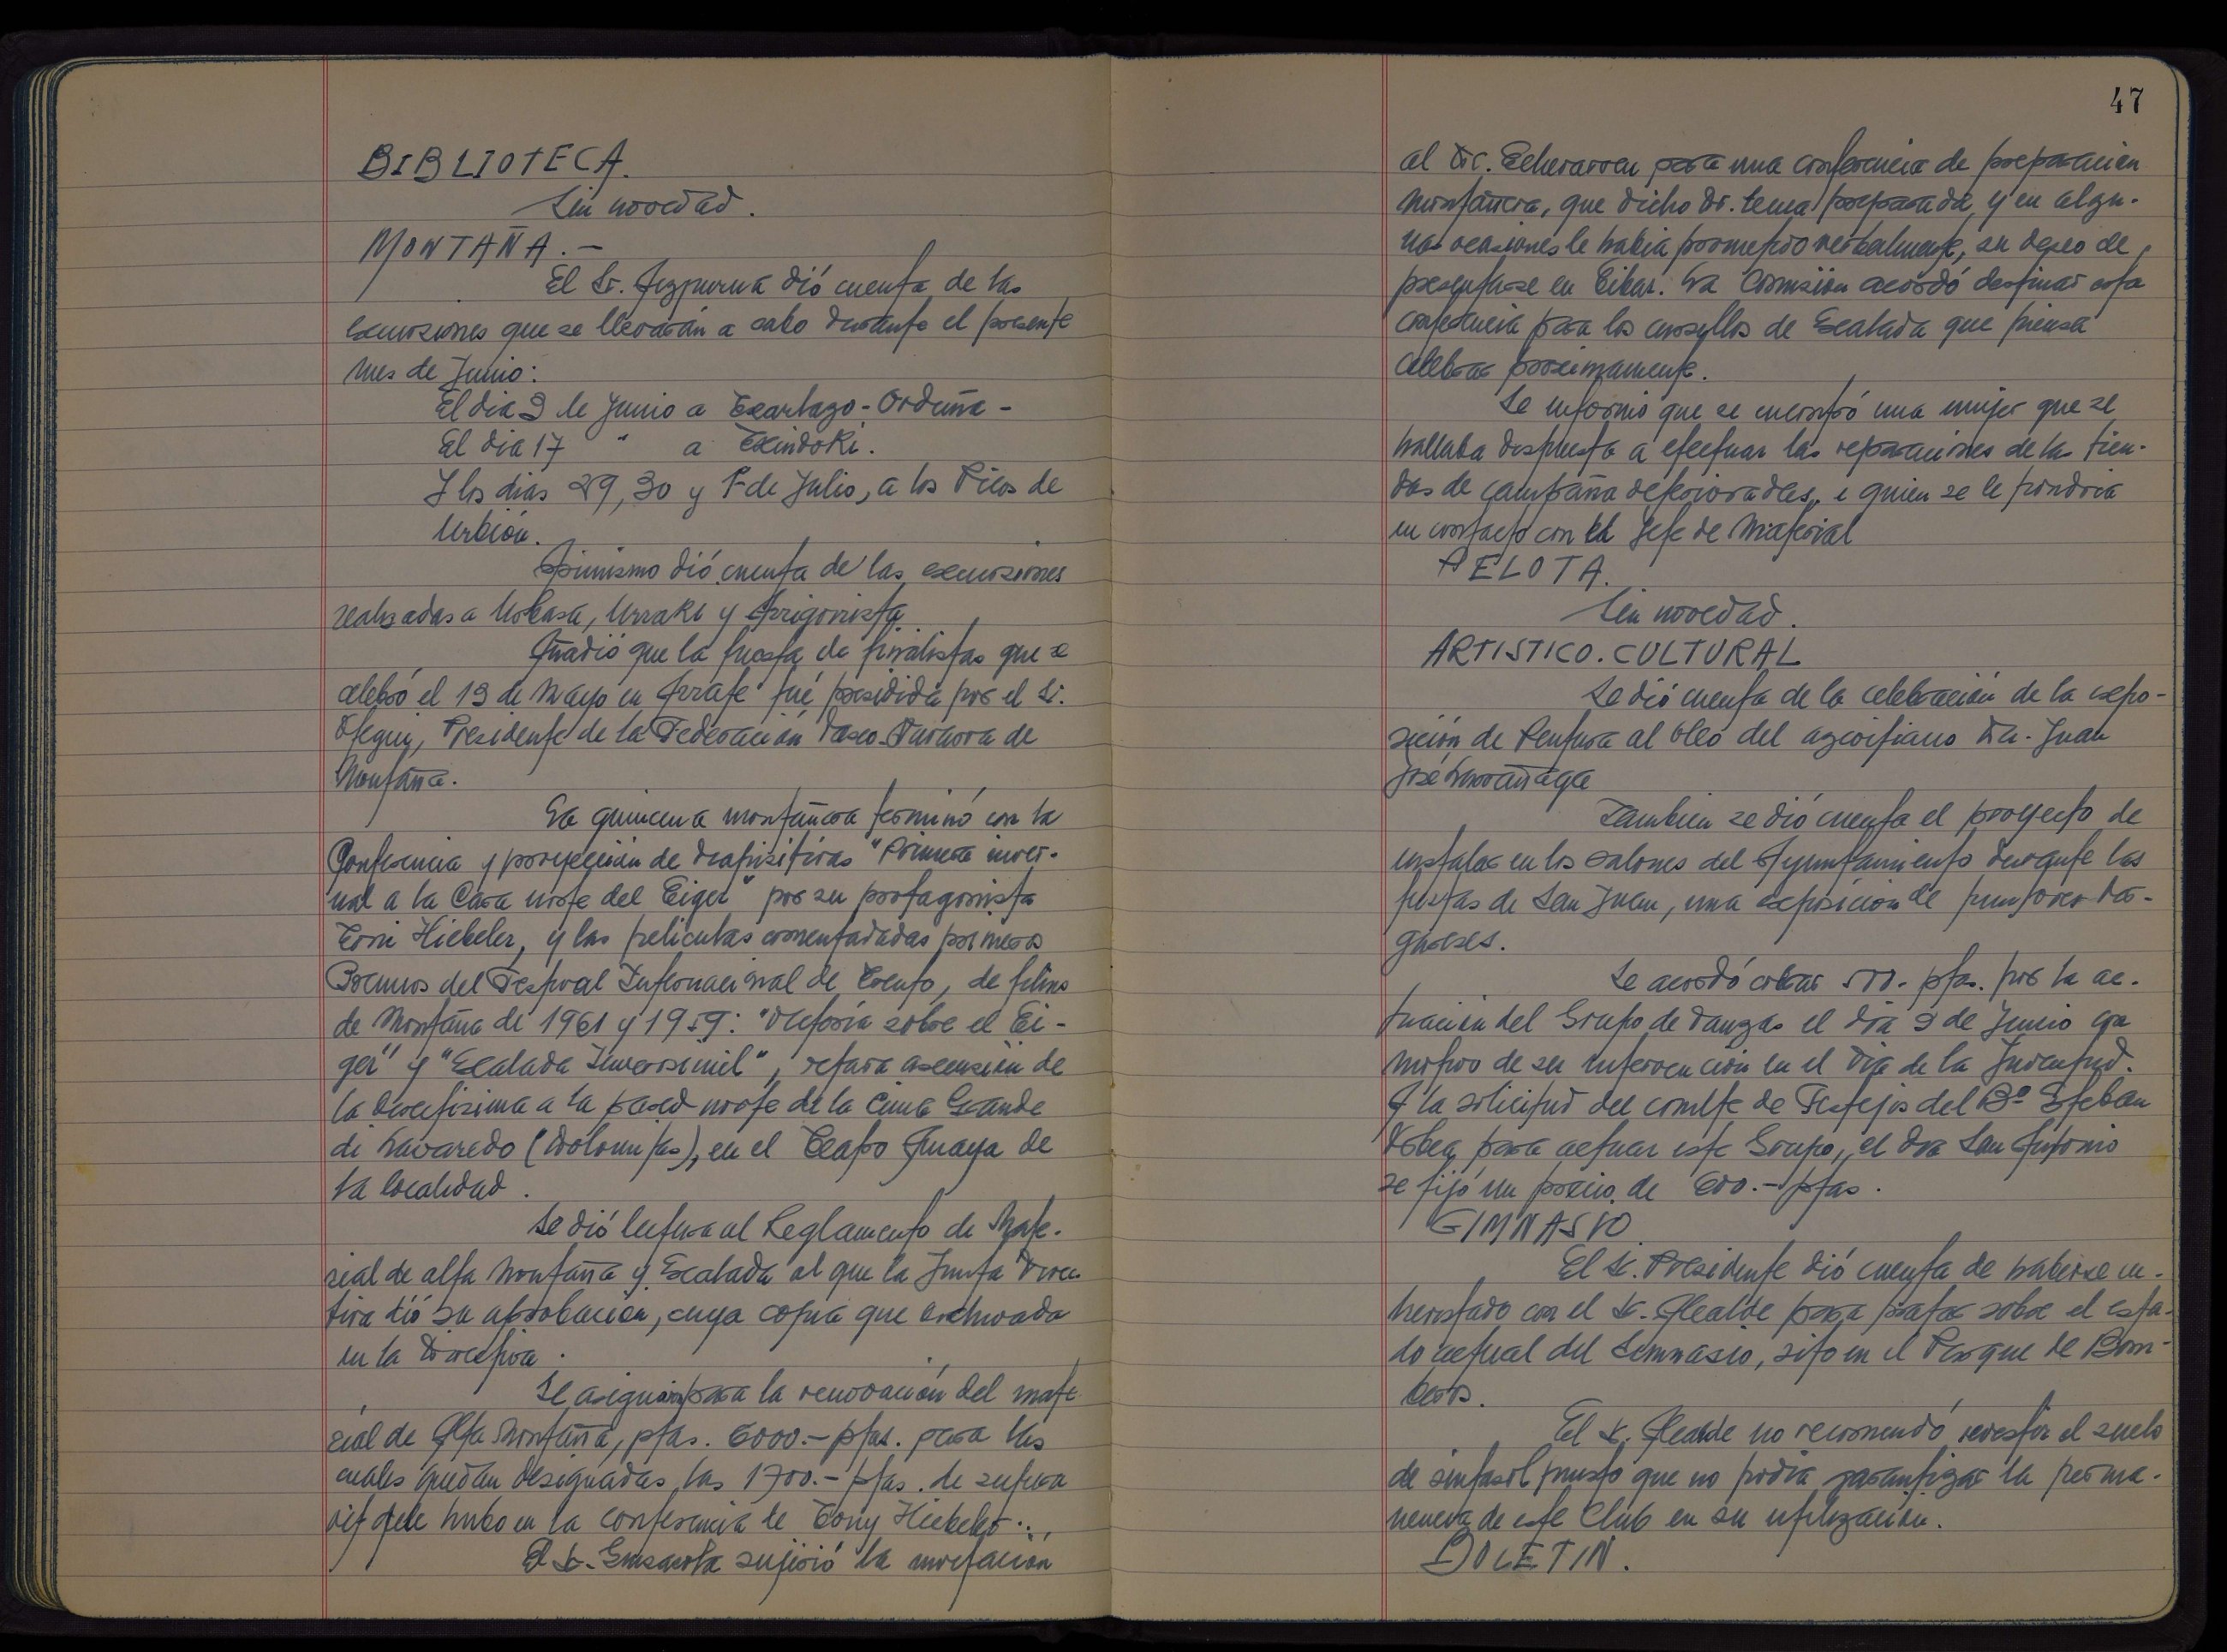 BIBLIOTECA.
Sin novedad.
MONTAÑA.-
El Sr. Azpurua dió cuenta de las
excursiones que se llevarán a cabo durante el presente
mes de Junio:
El dia 3 de Junio a Txarlazo-Orduña-
El dia 17 " a Txindoki.
Y los dias 29, 30 y 1º de Julio, a los Picos de
Urbión.
Asimismo dió cuenta de las excursiones
realizadas a Urbasa, Urraki y Arrigorrista
Añadió que la fiesta de finalistas que se
celebró el 13 de Mayo en Arrate fué presidida por el Sr.
Otegui, Presidente de la Federación Vasco-Navarra de
Montaña.
La quincena montañera terminó con la
Conferencia y proyección de diapositivas "Primera inver-
nal a la Cara norte del Eiger" por su protagonista
Toni Hiebeler, y las peliculas comentadas primeros
Premios del Festival Internacional de Trento, de films
de Montaña de 1961 y 1959: "Victoria sobre el Ei-
ger" y "Escalada Inverosimil", ascensión de
la directisima a la pared norte de la Cima Grande
di Lavaredo (Dolomitas), en el Teatro Amaya de
la localidad.
Se dió lectura al Reglamento de Mate-
rial de alta Montaña y Escalada al que la Junta Direc-
tiva dió su aprobación, cuya copia que archivada
en la Directiva.
Se asignó para la renovación del mate
rial de Alta Montaña, ptas. 6000.- ptas. para las
cuales quedan designadas las 1700.- ptas. de supera
vit que hubo en la conferencia de Tony Hiebeler.
El Sr. sujirió la invitación
47
al Dr. Echevarren para una conferencia de preparación
Montañera, que dicho Dr. tenia preparada, y en algu-
nas ocasiones le habia prometido verbalmente, su deseo de
presentarse en Eibar. La Comisión acordó destinar esta
conferencia para los cursillos de Escalada que piensa
celebrar proximamente.
Se informó que se encontró una mujer que se
hallaba dispuesta a efectuar las reparaciones de las tien-
das de campaña deterioradas, a quien se le pondria
en contacto con el Jefe de Material
PELOTA.
Sin novedad.
ARTISTICO.CULTURAL
Se dió cuenta de la celebración de la expo-
sición de Pintura al oleo del azcoitiano Dn. Juan
José Larrañaga
Tambien se dió cuenta el proyecto de
instalar en los salones del Ayuntamiento durante las
fiestas de San Juan, una exposición de pintores
Se acordó cobrar 500.- ptas. por la ac-
tuación del Grupo de danzas el dia 3 de Junio con
motivo de su intervención en el Dia de la Juventud.
A la solicitud del comite de Festejos del Bº Esteban
Orbea para actuar este Grupo, el dia San Antonio
se fijó un precio de 600.- ptas.
GIMNASIO.
El Sr. Presidente dió cuenta de haberse en-
trevistado con el Sr. Alcalde para tratar sobre el esta-
do actual del Gimnasio, sito en el Parque de Bom-
beros.
El Sr. Alcalde no recomendó revestir el suelo
de sintasol puesto que no podia garantizar la perma-
nencia de este Club en su utilización.
BOLETIN.